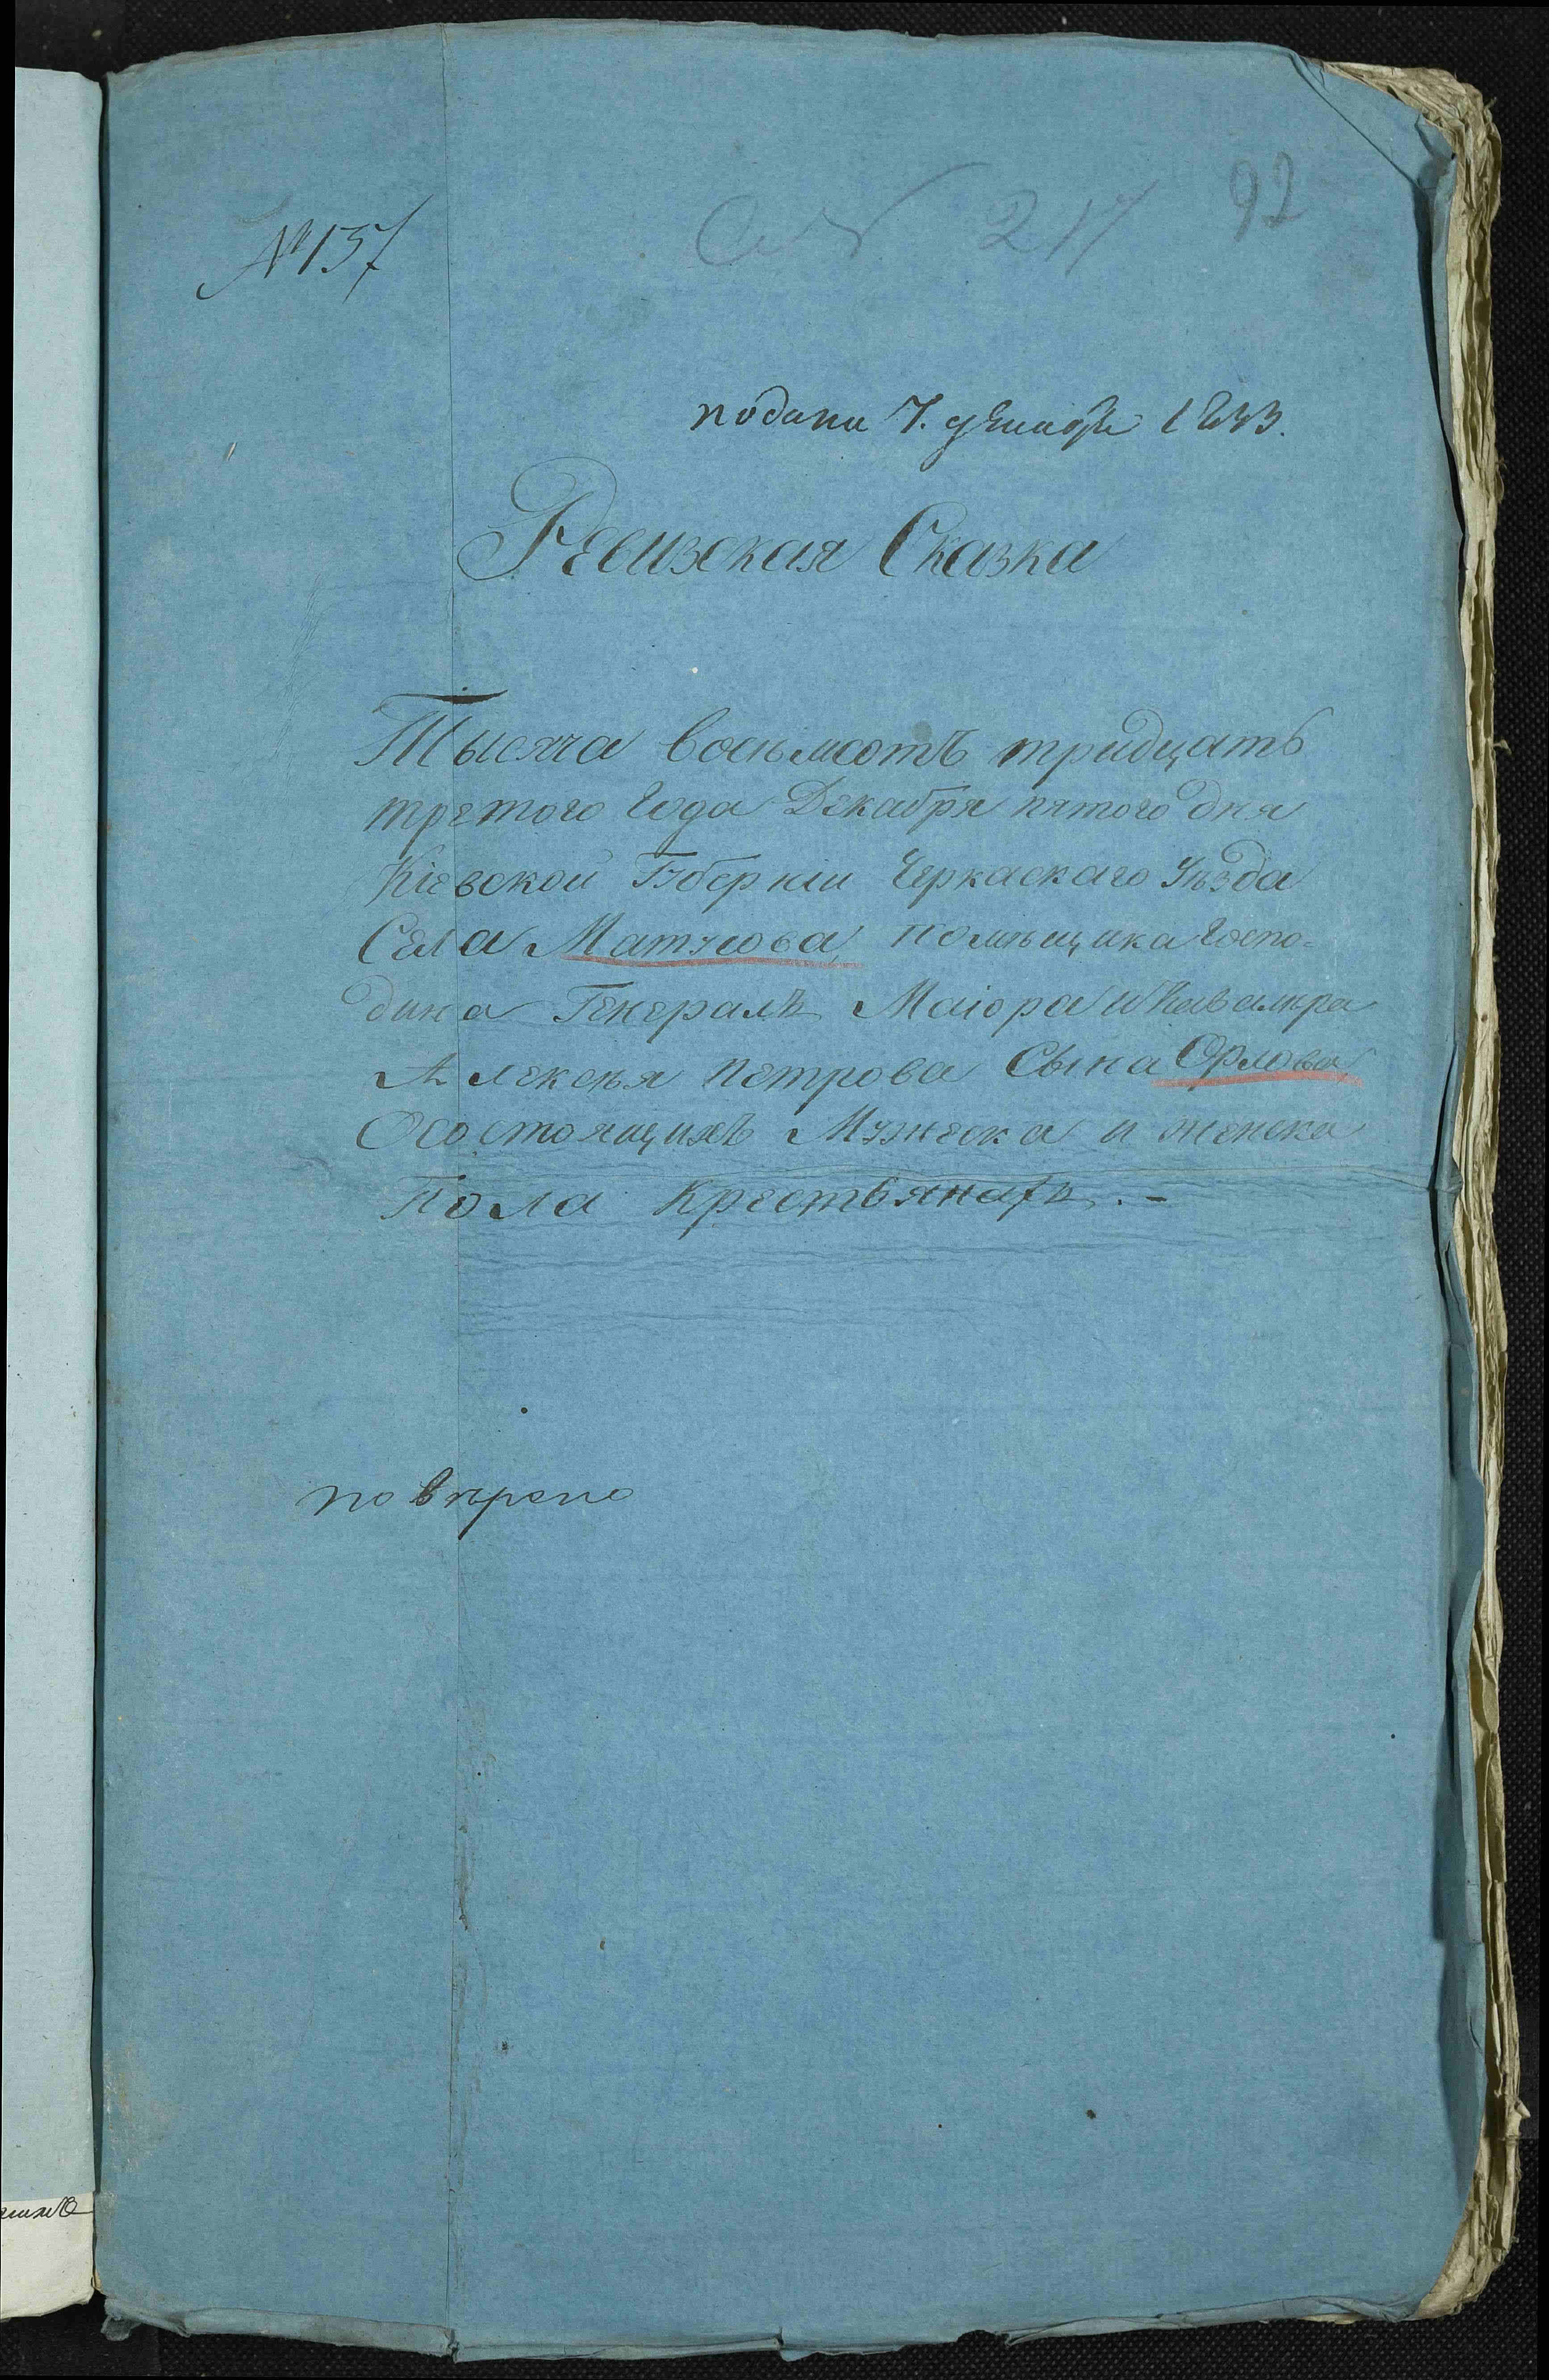 № 157
217
92
подана 7. декабря 1833.
Ревизская Сказка
Тысяча восьмсотъ тридцать
третого Года Декабря пятого дня
Кіевской Губерніи Черкаскаго Уѣзда
Села Матусова, помѣщика Госпо-
дина Генералъ Маіора и Кавалѣра
Алексѣя Петрова Сына Орлова,
Осостоящихъ Мужеска и женска
Пола Крестьянахъ. -
повѣрено